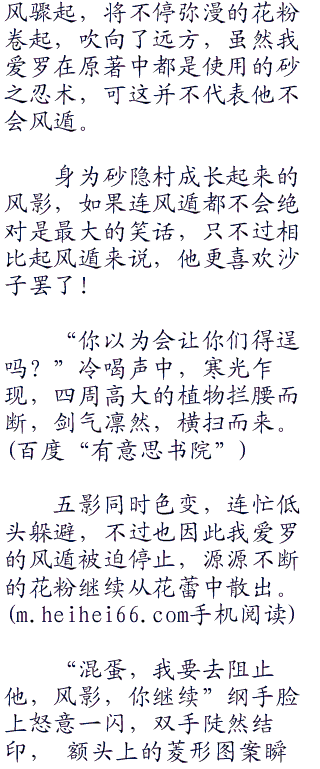 风骤起，将不停弥漫的花粉
卷起，吹向了远方，虽然我
爱罗在原著中都是使用的砂
之忍术，可这并不代表他不
会风遁。
身为砂隐村成长起来的
风影，如果连风遁都不会绝
对是最大的笑话，只不过相
比起风遁来说，他更喜欢沙
子罢了！
“你以为会让你们得逞
吗？”冷喝声中，寒光乍
现，四周高大的植物拦腰而
断，剑气凛然，横扫而来。
(百度“有意思书院”)
五影同时色变，连忙低
头躲避，不过也因此我爱罗
的风遁被迫停止，源源不断
的花粉继续从花蕾中散出。
(m.heihei66.com手机阅读)
“混蛋，我要去阻止
他，风影，你继续”纲手脸
上怒意一闪，双手陡然结
印， 额头上的菱形图案瞬